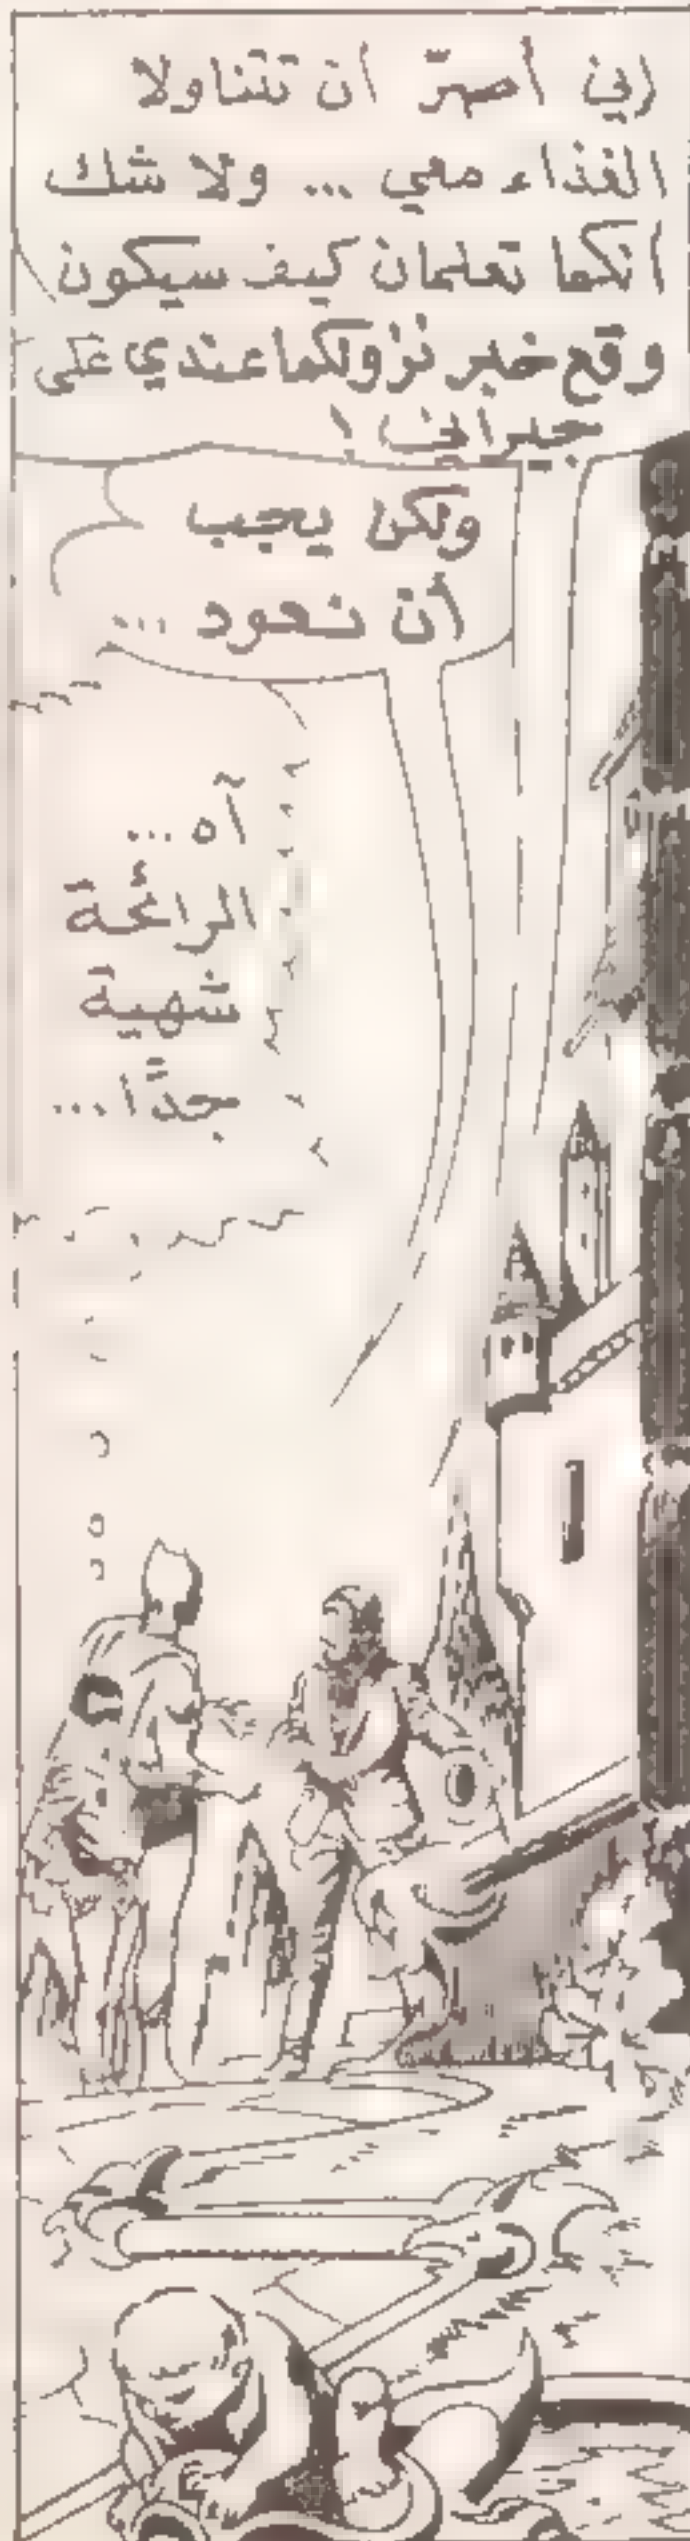 إني أصرّ أن تتناولا
الغذاء معي ... ولا شك
أنكما تعلمان كيف سيكون
وقع خبر نزولكما عندي على
جيراني !
ولكن يجب
أن نعود ...
آه ...
الرائحة
شهية
جدًا ...